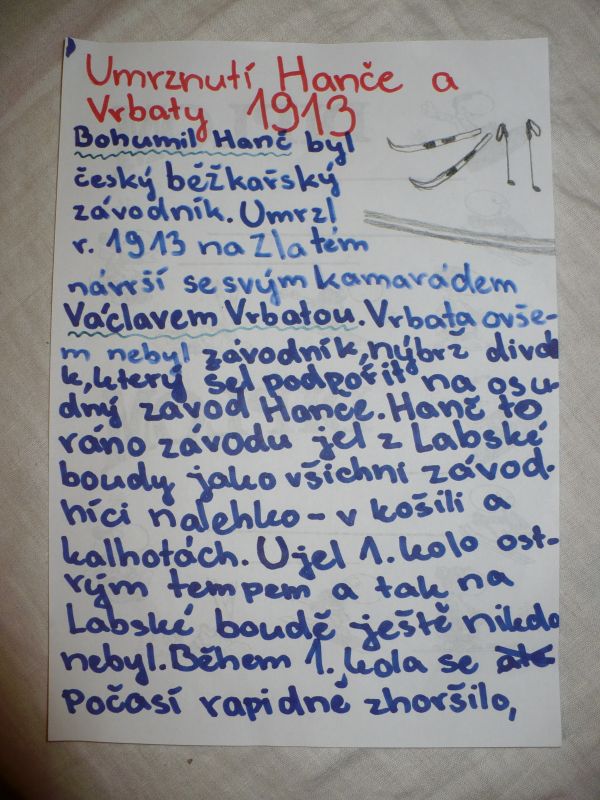 Umrznutí Hanče a
Vrbaty 1913
Bohumil Hanč byl
český běžkařský
závodník. Umrzl
r. 1913 na Zlatém
návrší se svým kamarádem
Václavem Vrbatou. Vrbata ovše-
m nebyl závodník, nýbrž divá
k, který šel podpořit na osu-
dný závod Hanče. Hanč to
ráno závodu jel z Labské
boudy jako všichni závod-
níci nalehko - v košili a
kalhotách. Ujel 1. kolo ost-
rým tempem a tak na
Labské boudě ještě nikdo
nebyl. Během 1. kola se
počasí rapidně zhoršilo,